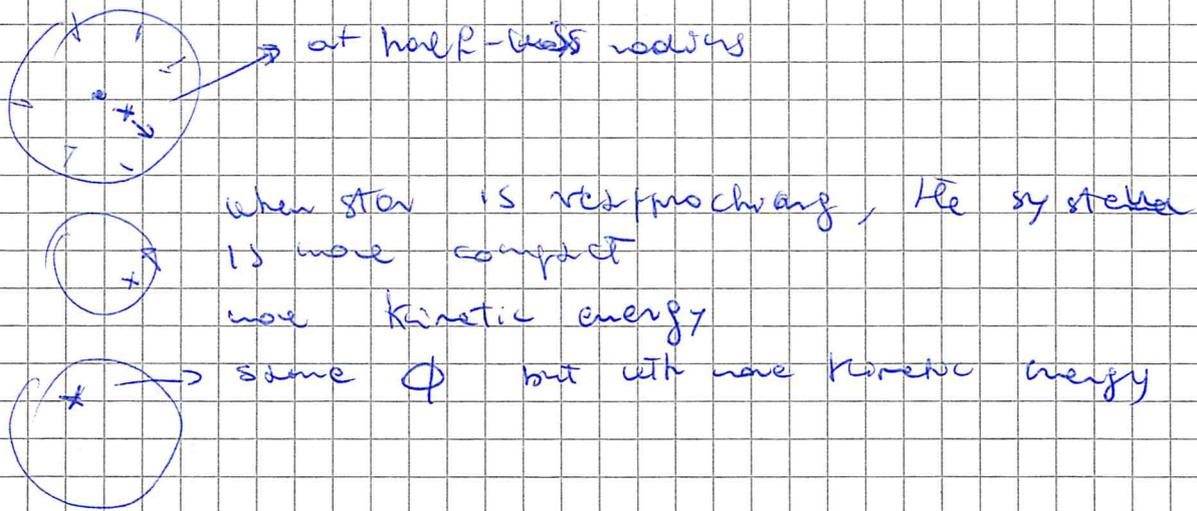 at half-mass radius
when star is reapproching, the system
is more compact
more kinetic energy
→ same ϕ but with more kinetic energy